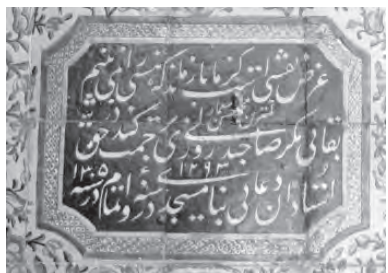 غرض نقشی است کز ما باز ماند که هستی را نمی بینم
بقائی مگر صاحبدلی روزی برحمت کند در حق
استادان دعائی بنا مسجد در سنه ۱۲۹۳ و اتمام در سنه ۱۳۰۵